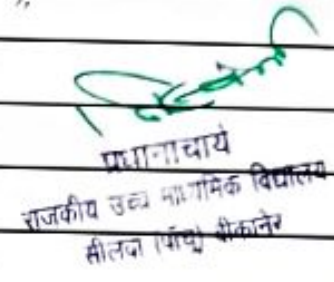 प्रधानाचार्य
राजकीय उच्च माध्यमिक विद्यालय
सीलवा (पांचू) बीकानेर